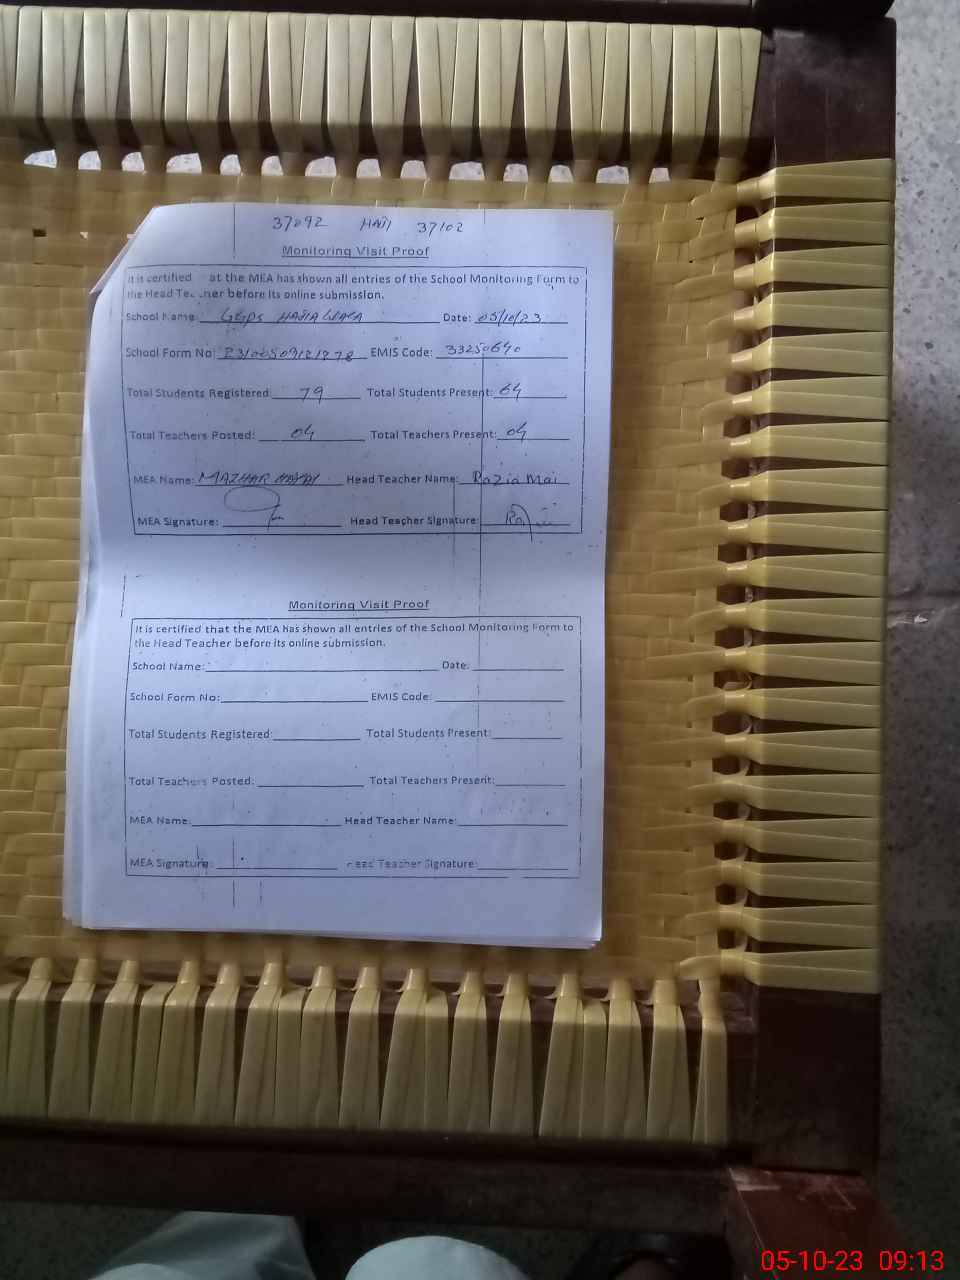 37092 HAJI 37102
Monitoring Visit Proof
It is certified at the MEA has shown all entries of the School Monitoring Form to
the Head Teacher before its online submission.
School Name: GGPS HAJIA WALA Date: 05/10/23
School Form No: EMIS Code: 33250640
Total Students Registered: 79 Total Students Present: 64
Total Teachers Posted: 04 Total Teachers Present: 04
MEA Name: MAZHAR Head Teacher Name: Razia Mai
MEA Signature: Head Teacher Signature:
Monitoring Visit Proof
It is certified that the MEA has shown all entries of the School Monitoring Form to
the Head Teacher before its online submission.
School Name: Date:
School Form No: EMIS Code:
Total Students Registered: Total Students Present:
Total Teachers Posted: Total Teachers Present:
MEA Name: Head Teacher Name:
MEA Signature: Head Teacher Signature:
05-10-23 09:13